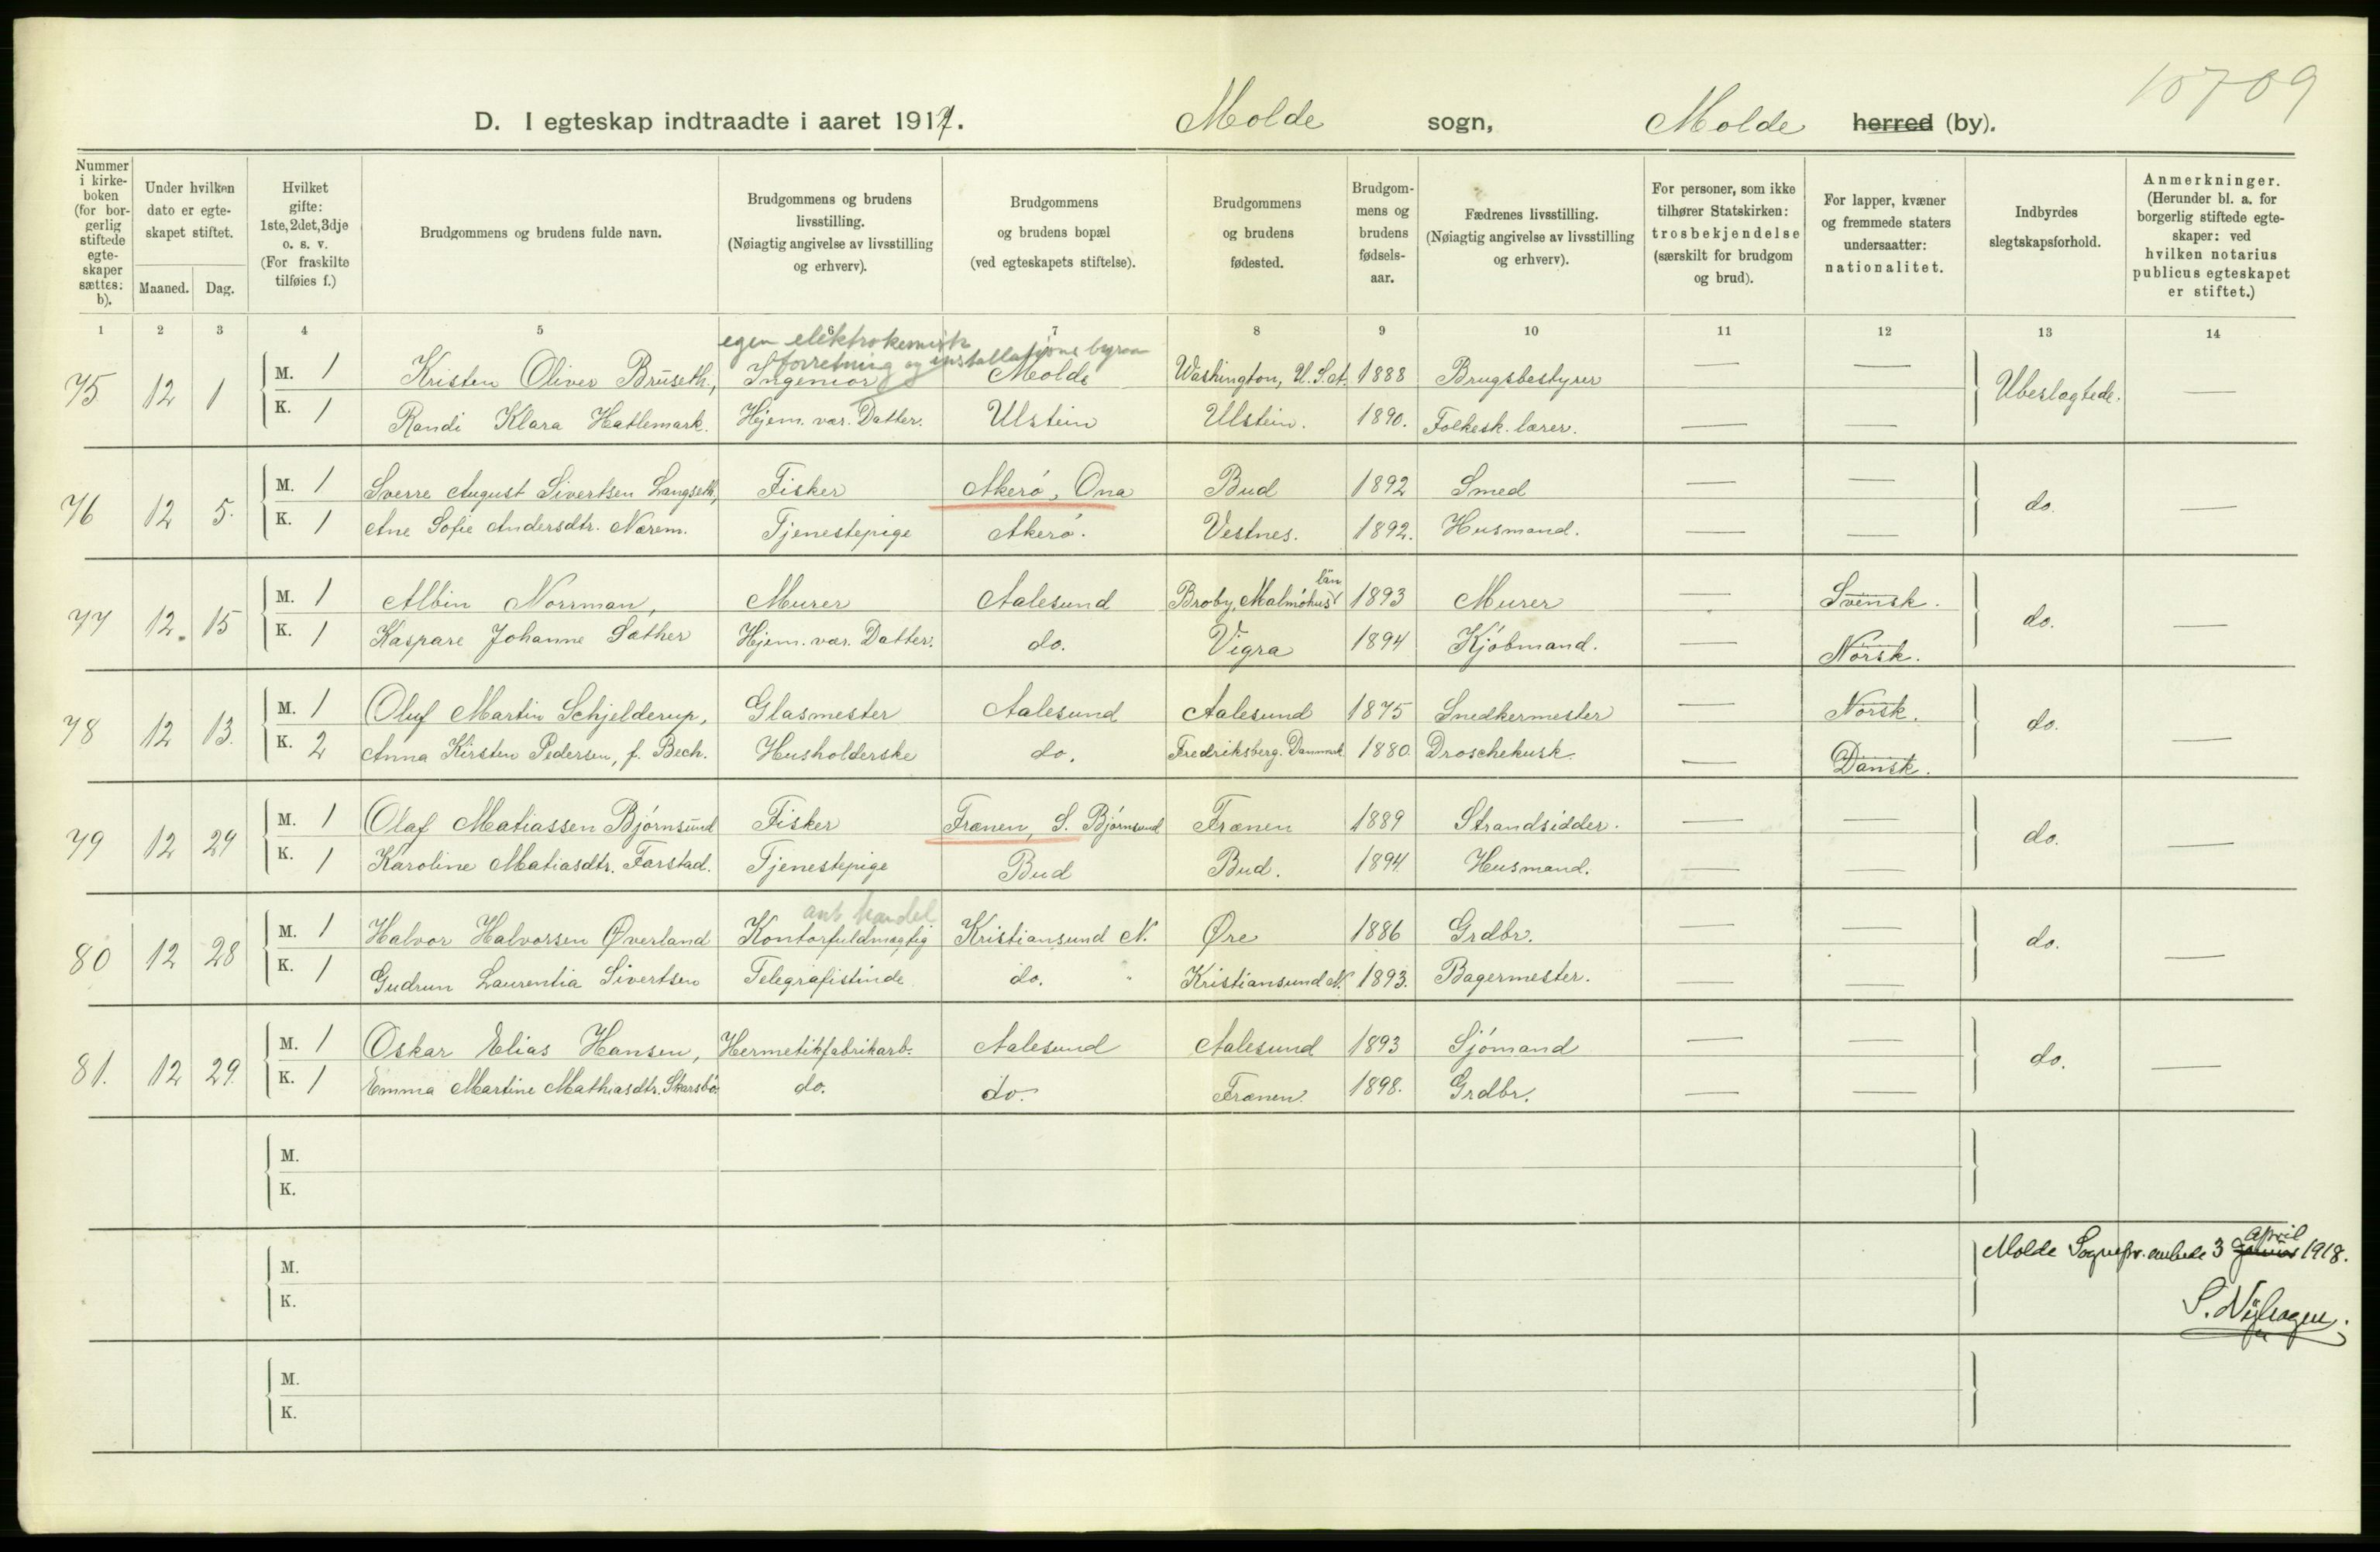 10709
D. I egteskap indtraadte i aaret 1917. Molde sogn, Molde herred (by).
Nummer i kirke-boken (for bor-gerlig stiftede egte-skaper sættes: b).
Under hvilken dato er egte-skapet stiftet.
Maaned. Dag.
Hvilket gifte: 1ste, 2det, 3dje o. s. v. (For fraskilte tilføies f.)
Brudgommens og brudens fulde navn.
Brudgommens og brudens livsstilling. (Nøiagtig angivelse av livsstilling og erhverv).
Brudgommens og brudens bopæl (ved egteskapets stiftelse).
Brudgommens og brudens fødested.
Brudgom-mens og brudens fødsels-aar.
Fædrenes livsstilling. (Nøiagtig angivelse av livsstilling og erhverv).
For personer, som ikke tilhører Statskirken: trosbekjendelse (særskilt for brudgom og brud).
For lapper, kvæner og fremmede staters undersaatter: nationalitet.
Indbyrdes slegtskapsforhold.
Anmerkninger. (Herunder bl. a. for borgerlig stiftede egte-skaper: ved hvilken notarius publicus egteskapet er stiftet.)
1 2 3 4 5 6 7 8 9 10 11 12 13 14
egen elektrokemisk
forretning og installations byraa
75 12 1 M. 1 Kristen Oliver Brüseth, Ingeniør Molde Washington, U.S.A. 1888 Brugsbestyrer — — Ubeslagtede. —
K. 1 Randi Klara Hatlemark. Hjem. vær. Datter. Ulstein Ulstein. 1890. Folkesk. lærer. — —
76 12 5. M. 1 Sverre August Sivertsen Langseth, Fisker Akerö, Ona Bud 1892 Smed — — do. —
K. 1 Ane Sofie Andersdtr. Nærem. Tjenestepige Akerö. Vestnes. 1892. Husmand. — —
77 12. 15 M. 1 Albin Norrman, Murer Aalesund Broby, Malmöhus län 1893 Murer — Svensk. do. —
K. 1 Kaspare Johanne Sæther Hjem. vær. Datter. do. Vigra 1894 Kjöbmand. — Norsk.
78 12 13. M. 1 Oluf Martin Schjelderup, Glasmester Aalesund Aalesund 1875 Snedkermester — Norsk. do. —
K. 2 Anna Kirsten Pedersen, f. Bech. Husholderske do. Fredriksberg. Danmark 1880. Droschekusk. — Dansk.
79 12 29 M. 1 Olaf Matiassen Björnsund Fisker Frænen, S. Björnsund Frænen 1889 Strandsidder. — — do. —
K. 1 Karoline Matiasdtr. Farstad. Tjenestepige Bud Bud. 1894. Husmand. — —
handel
80 12 28 M. 1 Halvor Halvorsen Øverland Kontorfuldmægtig Kristiansund N. Øre 1886 Grdbr. — — do. —
K. 1 Gudrun Laurentia Sivertsen Telegrafistinde do. " Kristiansund N. 1893. Bagermester. — —
81. 12 29. M. 1 Oskar Elias Hansen, Hermetikfabrikarb. Aalesund Aalesund 1893 Sjömand — — do. —
K. 1 Emma Martine Mathiasdtr. Skarsbö. do. do. Frænen. 1898. Grdbr. — —
M.
K.
M.
Molde Sognepr. embede 3 januar april 1918.
K.
M.
K.